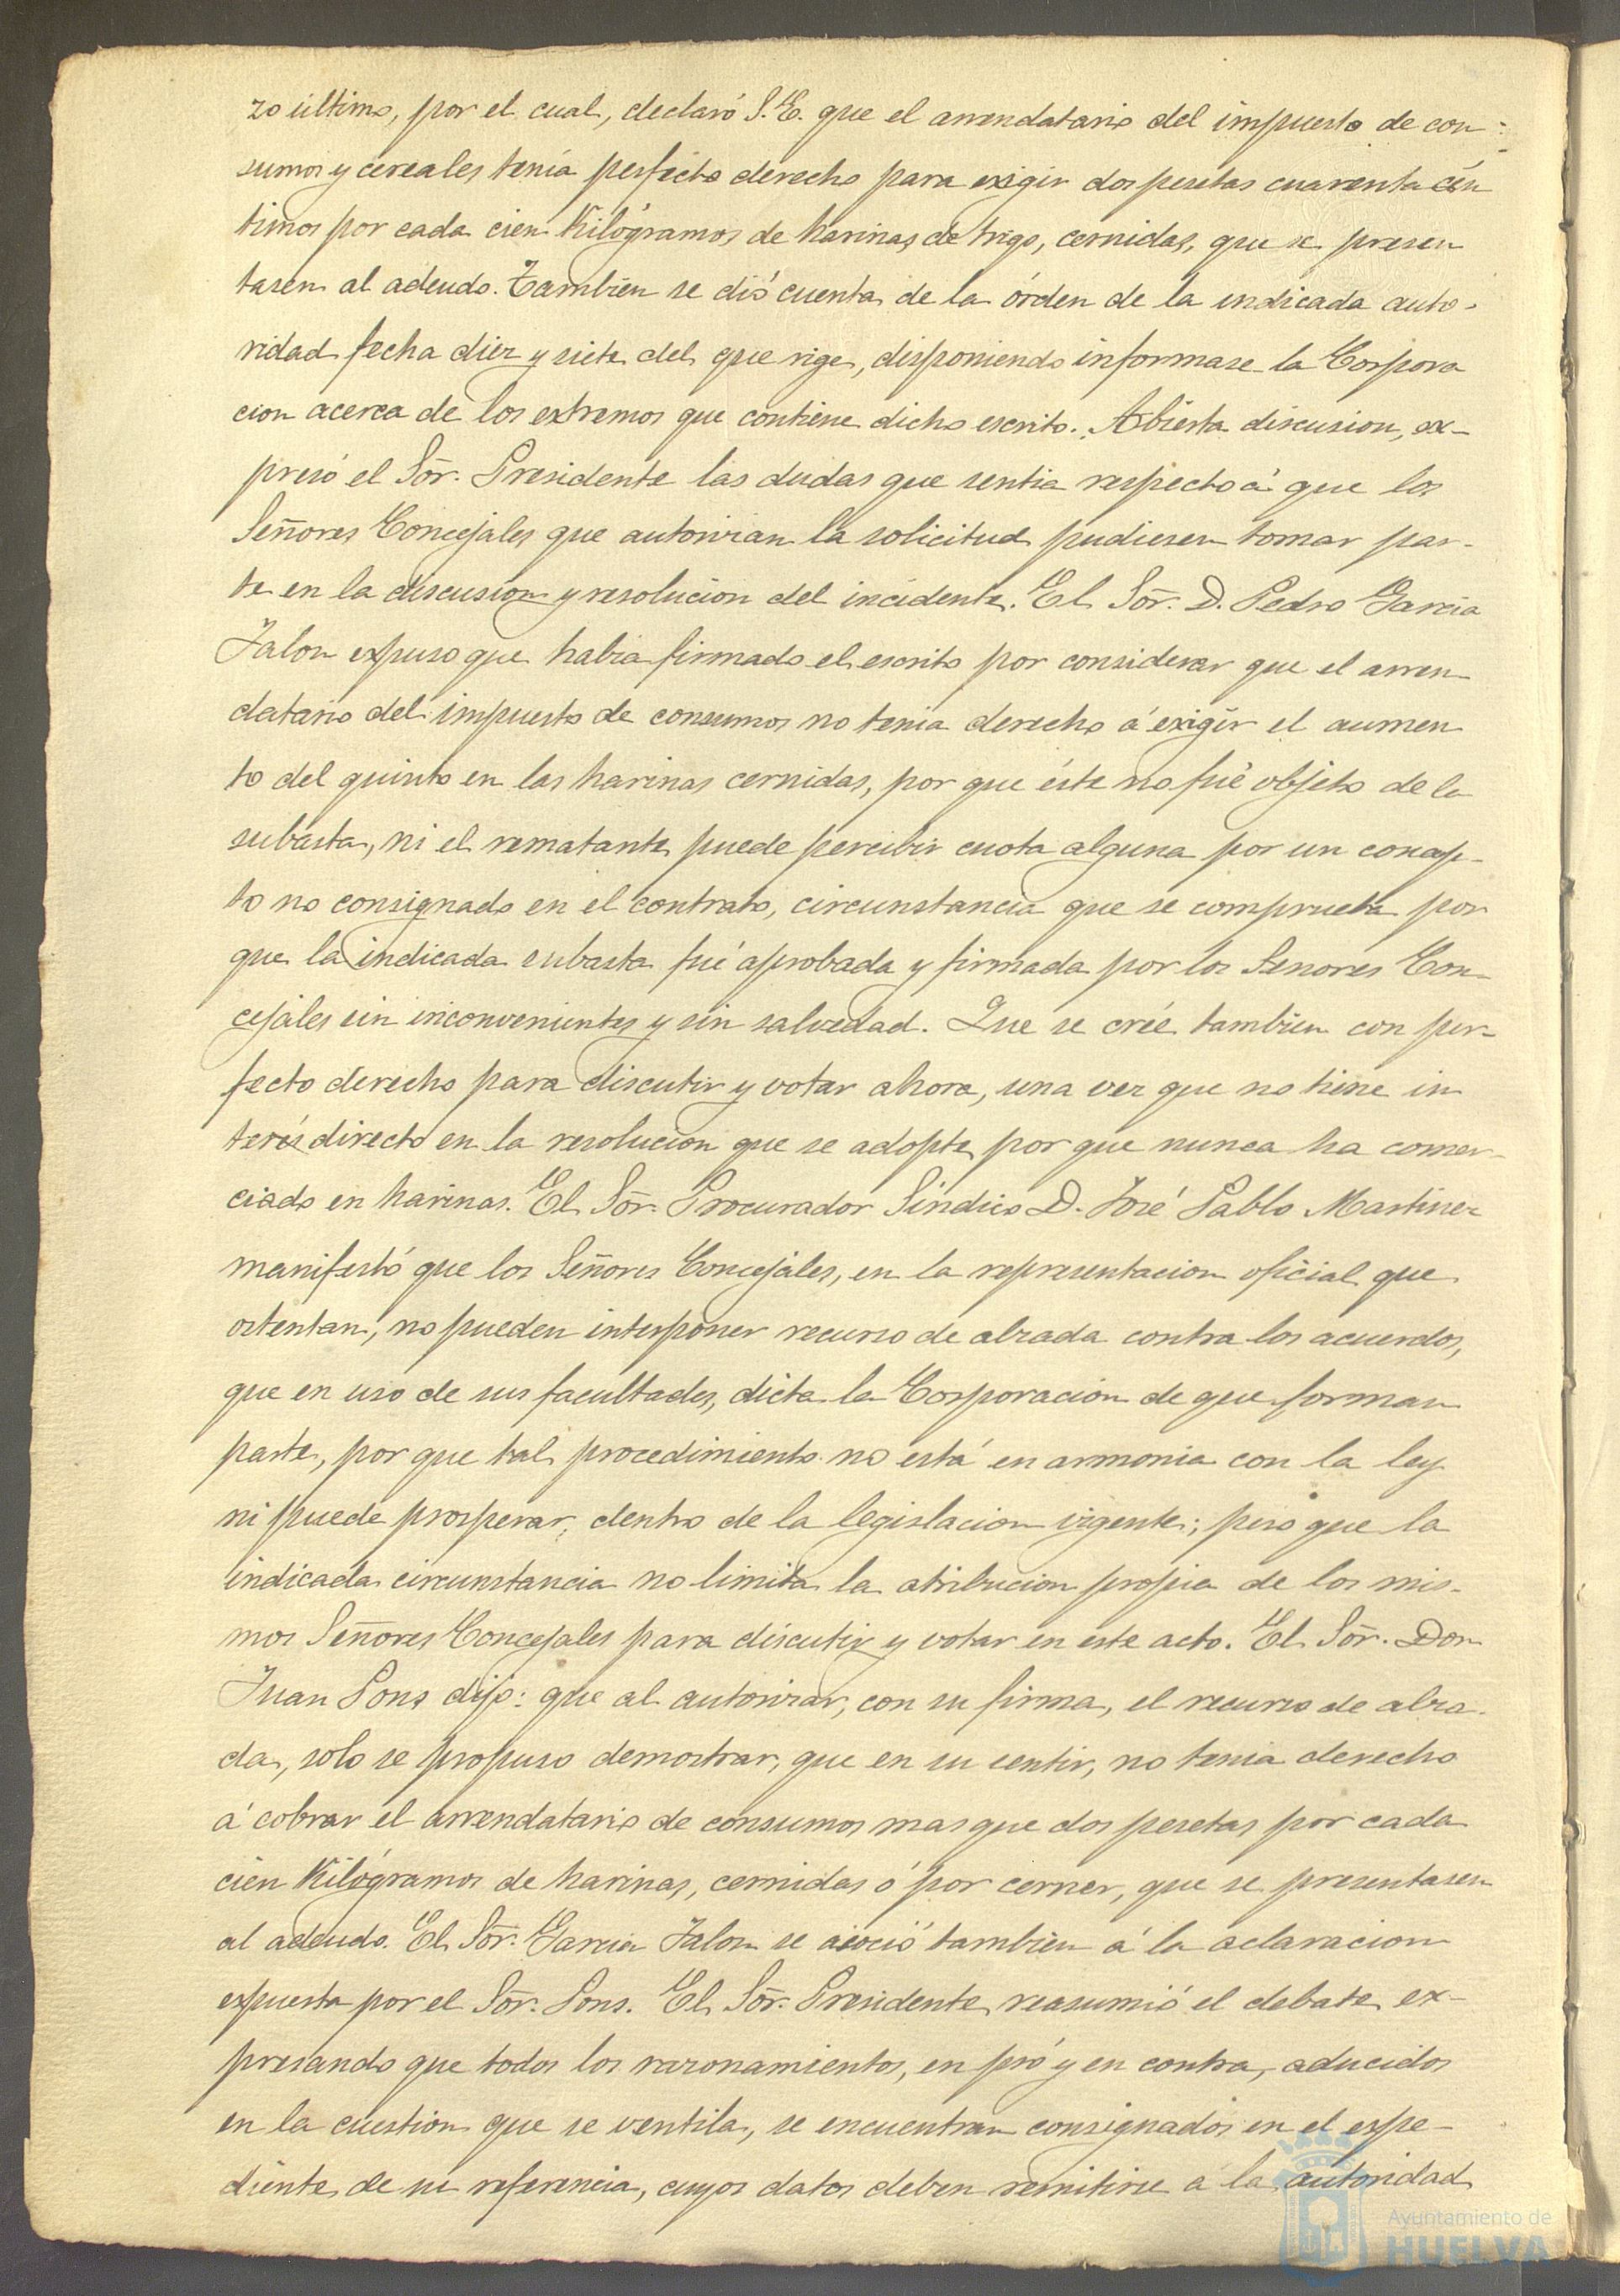 zo último, por el cual, declaró S.E. que el arrendatario del impuesto de con-
sumos y cereales tenía perfecto derecho para exigir dos pesetas cuarenta cén
timos por cada cien Kilógramos de harinas de trigo, cernidas, que se presen
tasen al adeudo. Tambien se dió cuenta de la órden de la indicada auto-
ridad fecha diez y siete del que rige, disponiendo informase la Corpora
cion acerca de los extremos que contiene dicho escrito. Abierta discusion, ex-
presó el Sör. Presidente las dudas que sentia respecto á que los
Señores Concejales que autorizan la solicitud pudiesen tomar par-
te en la discusion y resolucion del incidente. El Sör. D. Pedro Garcia
Jalon expuso que habia firmado el escrito por considerar que el arren
datario del impuesto de consumos no tenia derecho á exigir el aumen
to del quinto en las harinas cernidas, por que éste no fué objeto de la
subasta, ni el rematante puede percibir cuota alguna por un concep-
to no consignado en el contrato, circunstancia que se comprueba por
que la indicada subasta fué aprobada y firmada por los Señores Con-
cejales sin inconvenientes y sin salvedad. Que se créé tambien con per-
fecto derecho para discutir y votar ahora, una vez que no tiene in
terés directo en la resolucion que se adopte, por que nunca ha comer-
ciado en harinas. El Sör. Procurador Síndico D. José Pablo Martinez
manifestó que los Señores Concejales, en la representacion oficial que
ostentan, no pueden interponer recurso de alzada contra los acuerdos,
que en uso de sus facultades, dicta la Corporacion de que forman
parte, por que tal procedimiento no está en armonia con la ley
ni puede prosperar, dentro de la legislacion vigente; pero que la
indicada circunstancia no limita la atribucion propia de los mis-
mos Señores Concejales para discutir y votar en este acto. El Sör. Don
Juan Pons dijo: que al autorizar, con su firma, el recurso de alza-
da, solo se propuso demostrar, que en su sentir, no tenia derecho
á cobrar el arrendatario de consumos mas que dos pesetas por cada
cien Kilógramos de harinas, cernidas ó por cerner, que se presentasen
al adeudo. El Sör. Garcia Jalon se asoció tambien á la aclaracion
expuesta por el Sör. Pons. El Sör. Presidente, reasumió el debate, ex-
presando que todos los razonamientos, en pró y en contra, aducidos
en la cuestion que se ventila, se encuentran consignados en el espe-
diente de su referencia, cuyos datos deben remitirse á la autoridad
Ayuntamiento de
HUELVA